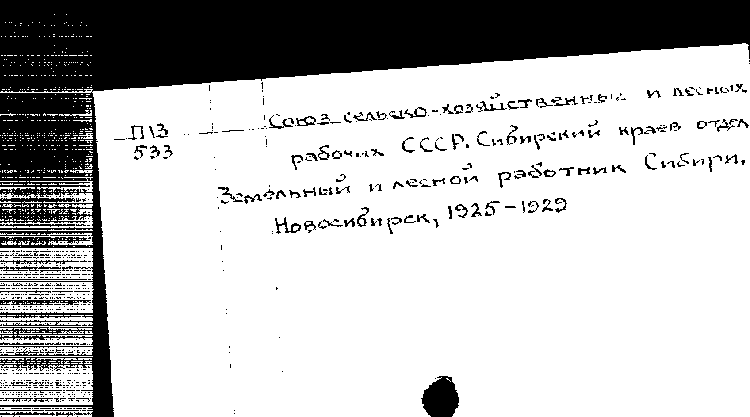 П13
533
Союз сельско-хозяйственных и лесных
рабочих СССР. Сибирский краев отдел
Земельный и лесной работник Сибири.
Новосибирск, 1925-1929